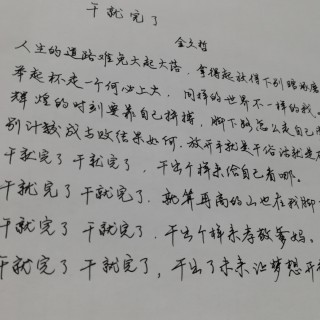 干就完了
金久哲
人生的道路难免大起大落,拿得起放得下别
举起杯走一个何必上火,同样的世界不一样的我
辉煌的时刻要靠自己拼搏,脚下路怎么走自己
别计较成与败结果如何,放开手就是干俗话就是
干就完了 干就完了,干出个样来给自己看哪。
干就完了 干就完了,就算再高的山也在我脚
干就完了 干就完了,干出个样来孝敬爹妈。
干就完了 干就完了,干出了未来让梦想开